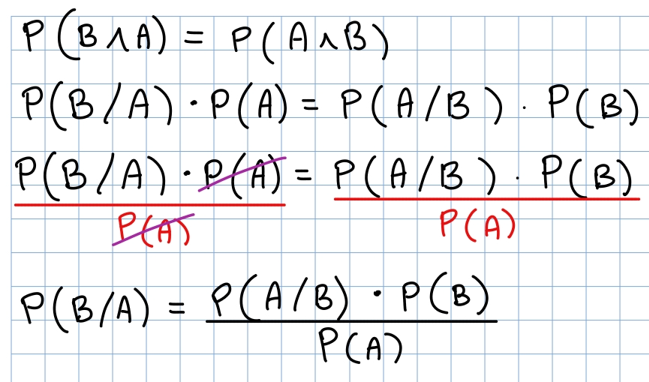 P(B∧A) = P(A∧B)
P(B/A) · P(A) = P(A/B) · P(B)
P(B/A) · P(A) = P(A/B) · P(B)
P(A) P(A)
P(B/A) = P(A/B) · P(B)
P(A)